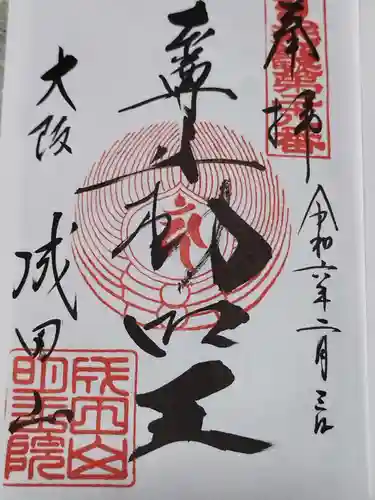 奉拝
令和六年二月三日
尊不動明王
大阪
成田山
成田山
明王院